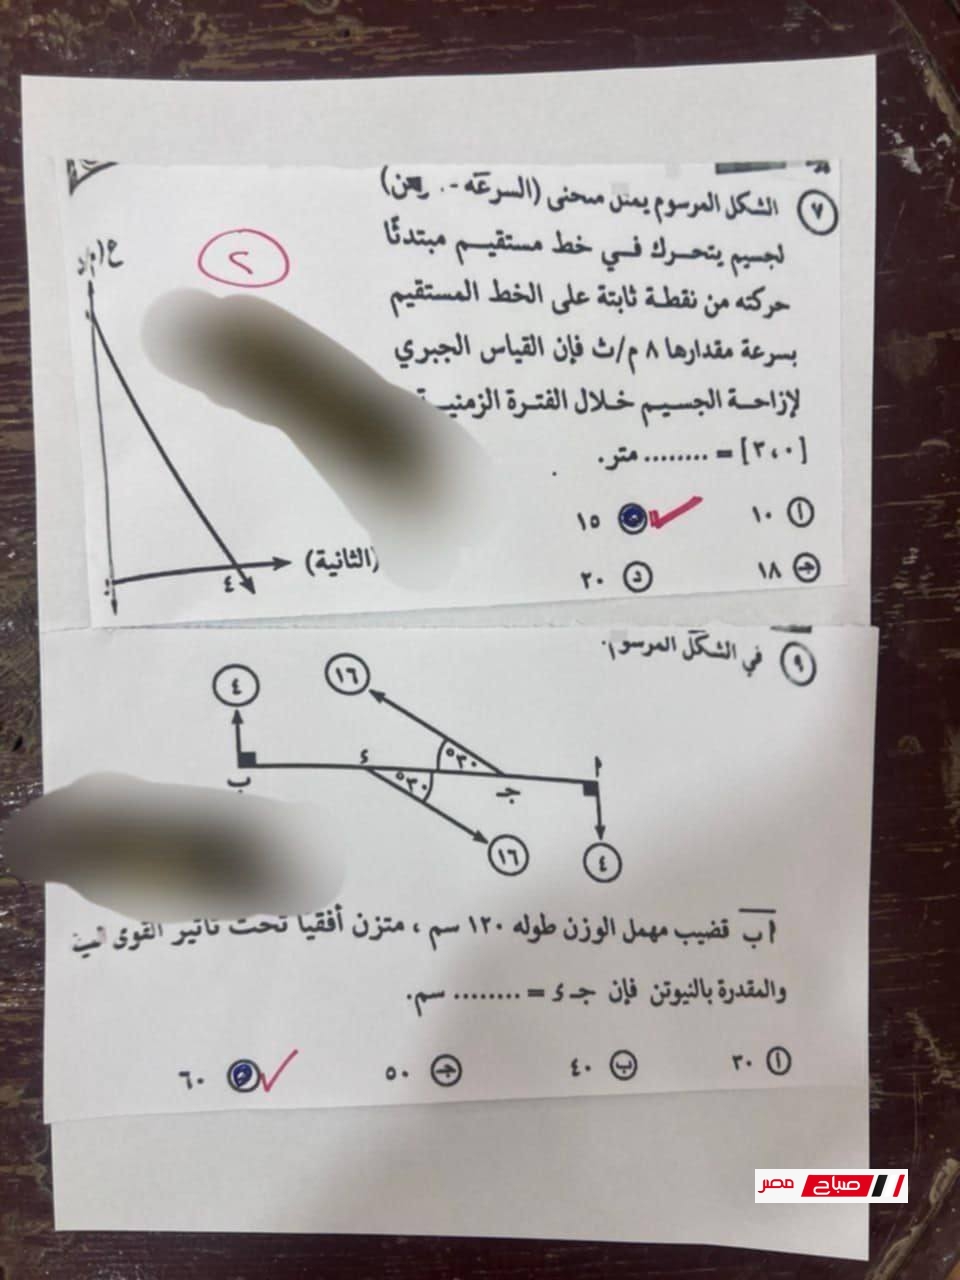 ٧ الشكل المرسوم يمثل منحنى (السرعة -
لجسيم يتحرك في خط مستقيم مبتدئًا
حركته من نقطة ثابتة على الخط المستقيم
بسرعة مقدارها ٨ م/ث فإن القياس الجبري
لإزاحة الجسيم خلال الفترة الزمنية
[٠، ٣] = ........ متر.
أ ١٠
١٥
جـ ١٨
د ٢٠
٢
ع (م/ث)
٤
(الثانية)
٩ في الشكل المرسوم
٤
١٦
ب
ء
٣٠°
٣٠°
جـ
أ
١٦
٤
أب قضيب مهمل الوزن طوله ١٢٠ سم ، متزن أفقيا تحت تأثير القوى
والمقدرة بالنيوتن فإن جـ ء = ........ سم.
أ ٣٠
ب ٤٠
جـ ٥٠
٦٠
صباح مصر